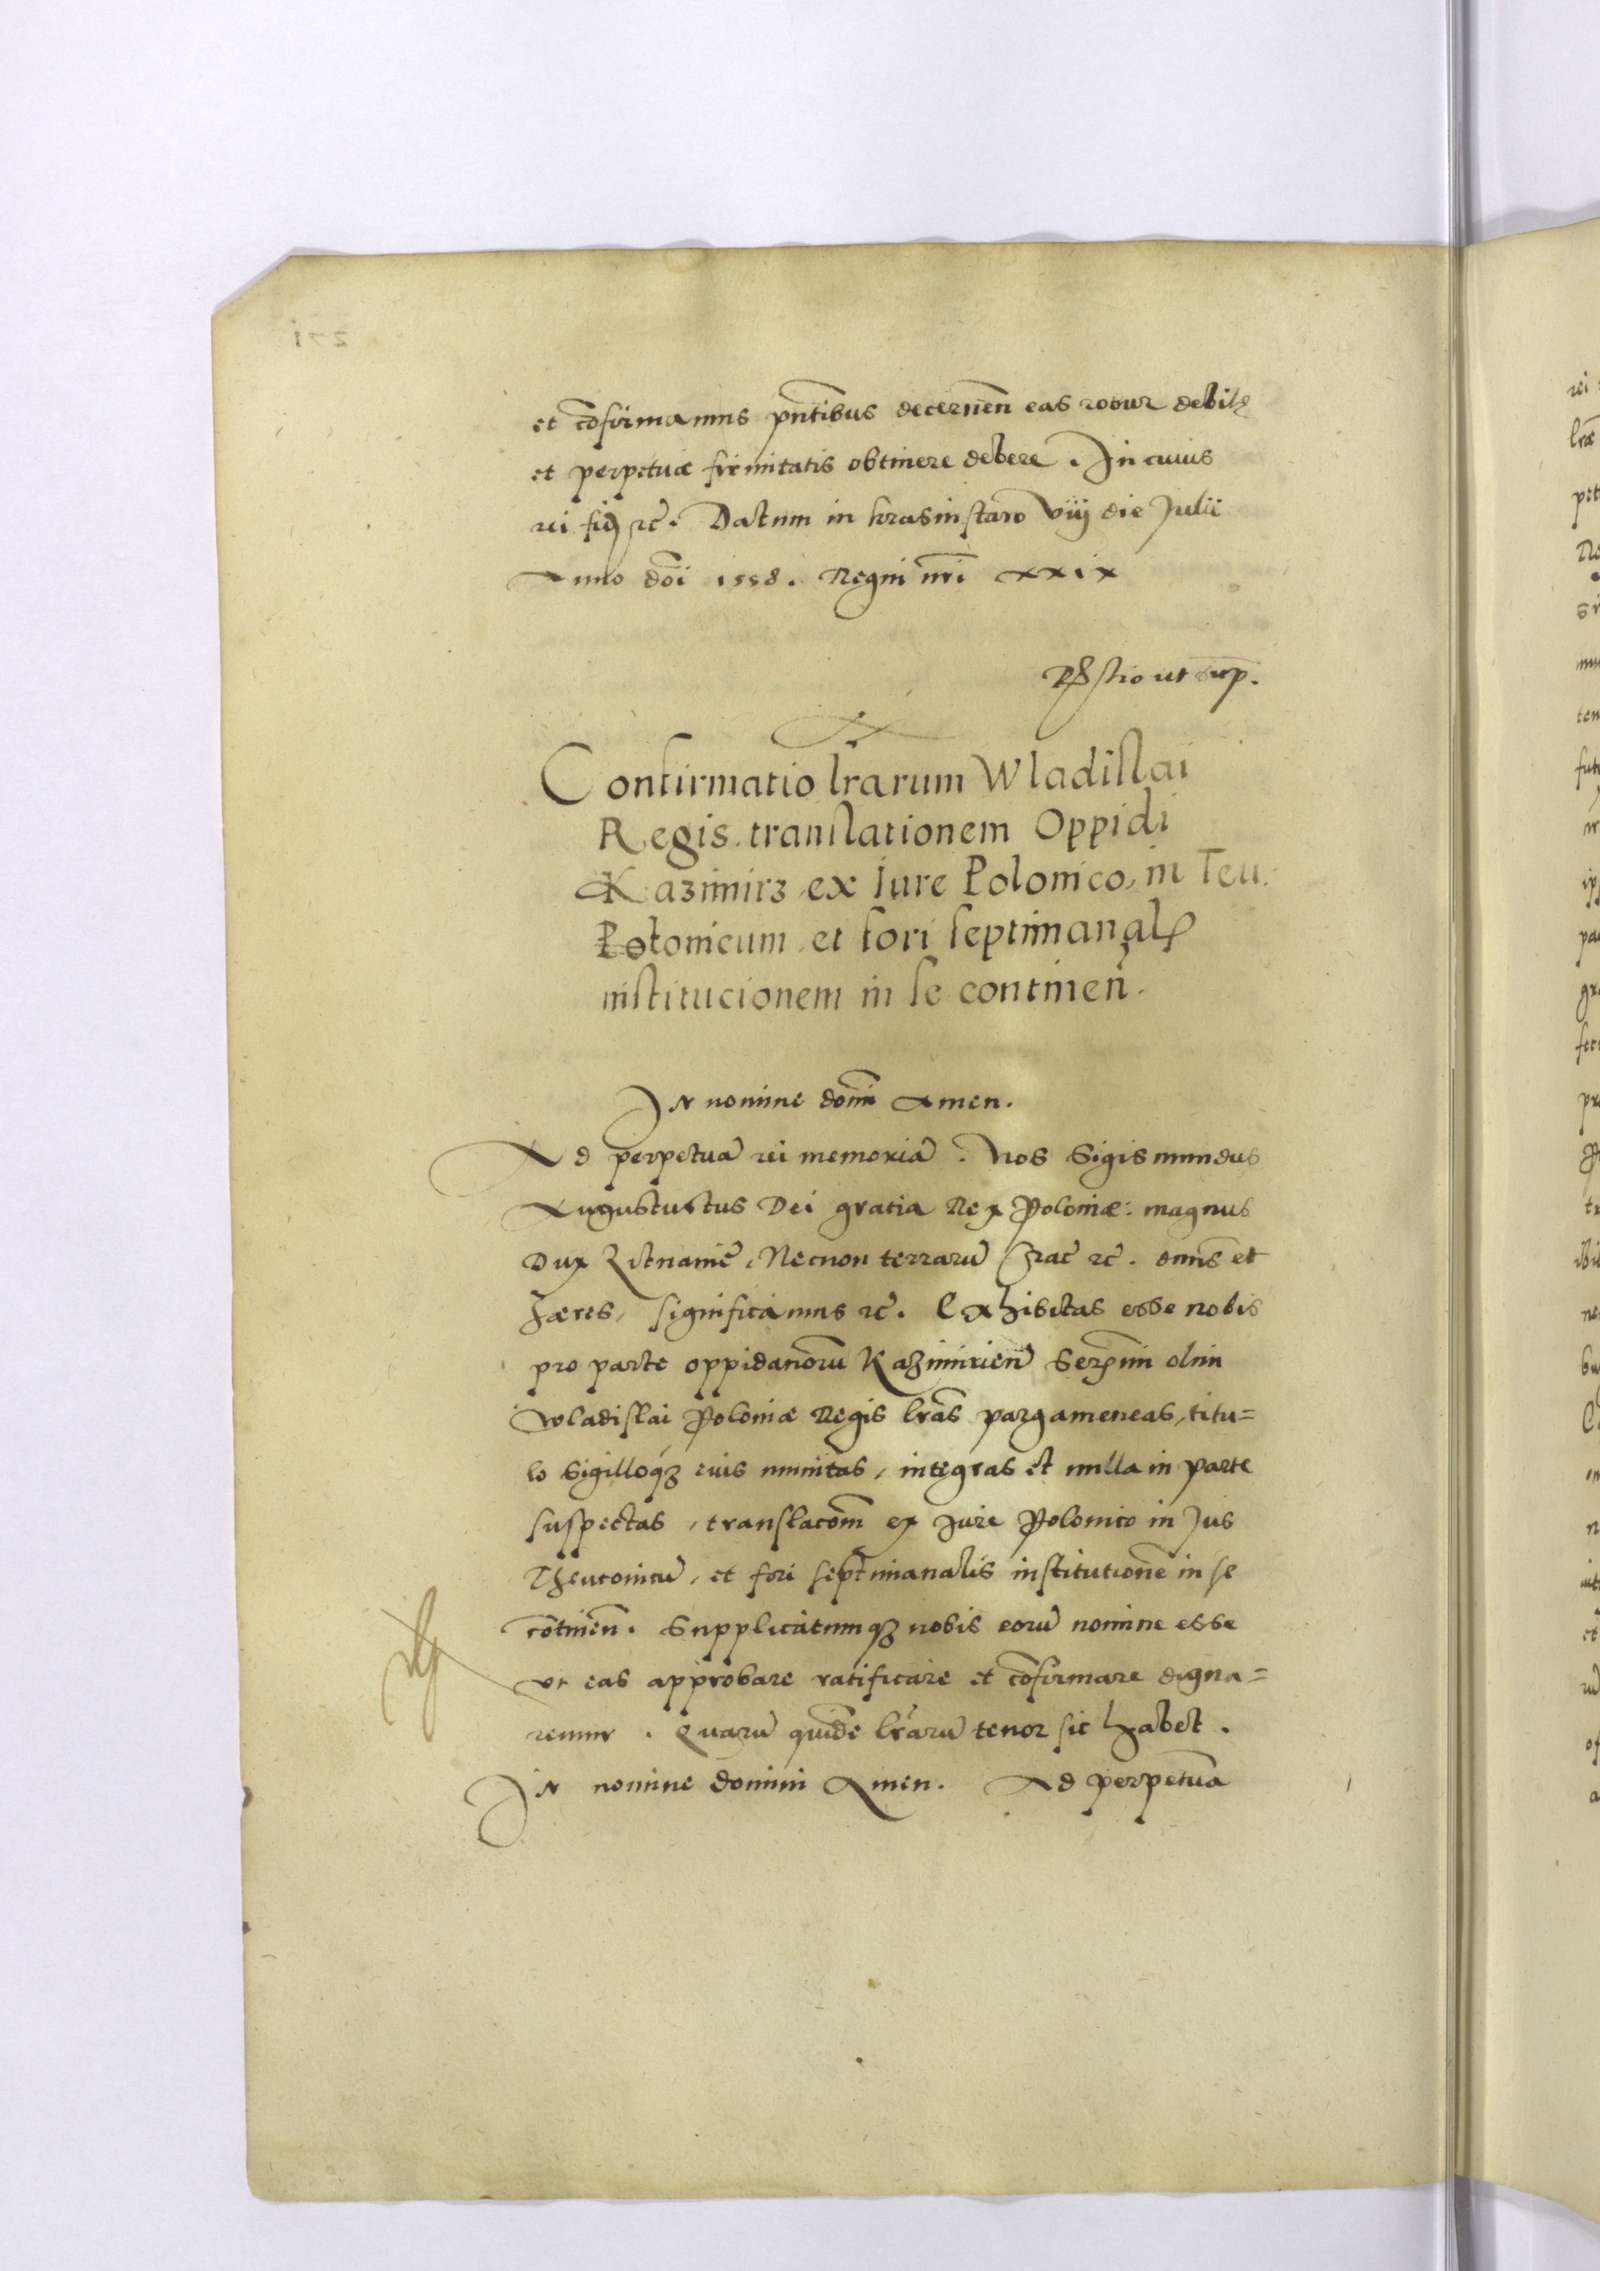 et cõfirmamus pñtibus decernen̄ eas robur debitę
et perpetuæ firmitatis obtinere debere. In cuius
rei fid ꝛc̃. Datum in krasnistaw viij die Julii
Anno dõi 1558. Regni nr̃i XXIX
Rỗtio ut sup.
Confirmatio lr̃arum Wladislai
Regis translationem Oppidi
Kazimirz ex Iure Polonico, in Teu.
Potonicum et fori septimanal
institucionem in se continen̄.
In nomine domi Amen.
Ad perpetuā rei memoriā. Nos Sigismundus
Augustustus Dei gratia Rex Poloniæ: magnus
Dux Litnaniẽ, Necnon terrarū Crac̃ ꝛc̃. dn̄us et
hæres, significamus ꝛc̃. Exhibitas esse nobis
pro parte oppidanorū Kazimirien̄ Serm̄i olim
Wladislai Poloniæ Regis lr̃as pargameneas, titu=
lo sigilloqꝫ eius munitas, integras et nulla in parte
suspectas, translacōm ex Jure Polonico in Jus
Theutonicū, et fori septimanalis institutionē in se
cõtinen̄. Supplicatumqꝫ nobis eorū nomine esse
ut eas approbare ratificare et cõfirmare digna=
remur. Quarū quidē lr̃arū tenor sic habet.
In nomine domini Amen. Ad perpetuā